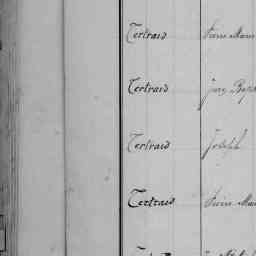 Tertrais Pierre Marie
Tertrais Jean Bapt
Tertrais Joseph
Tertrais Pierre Mar